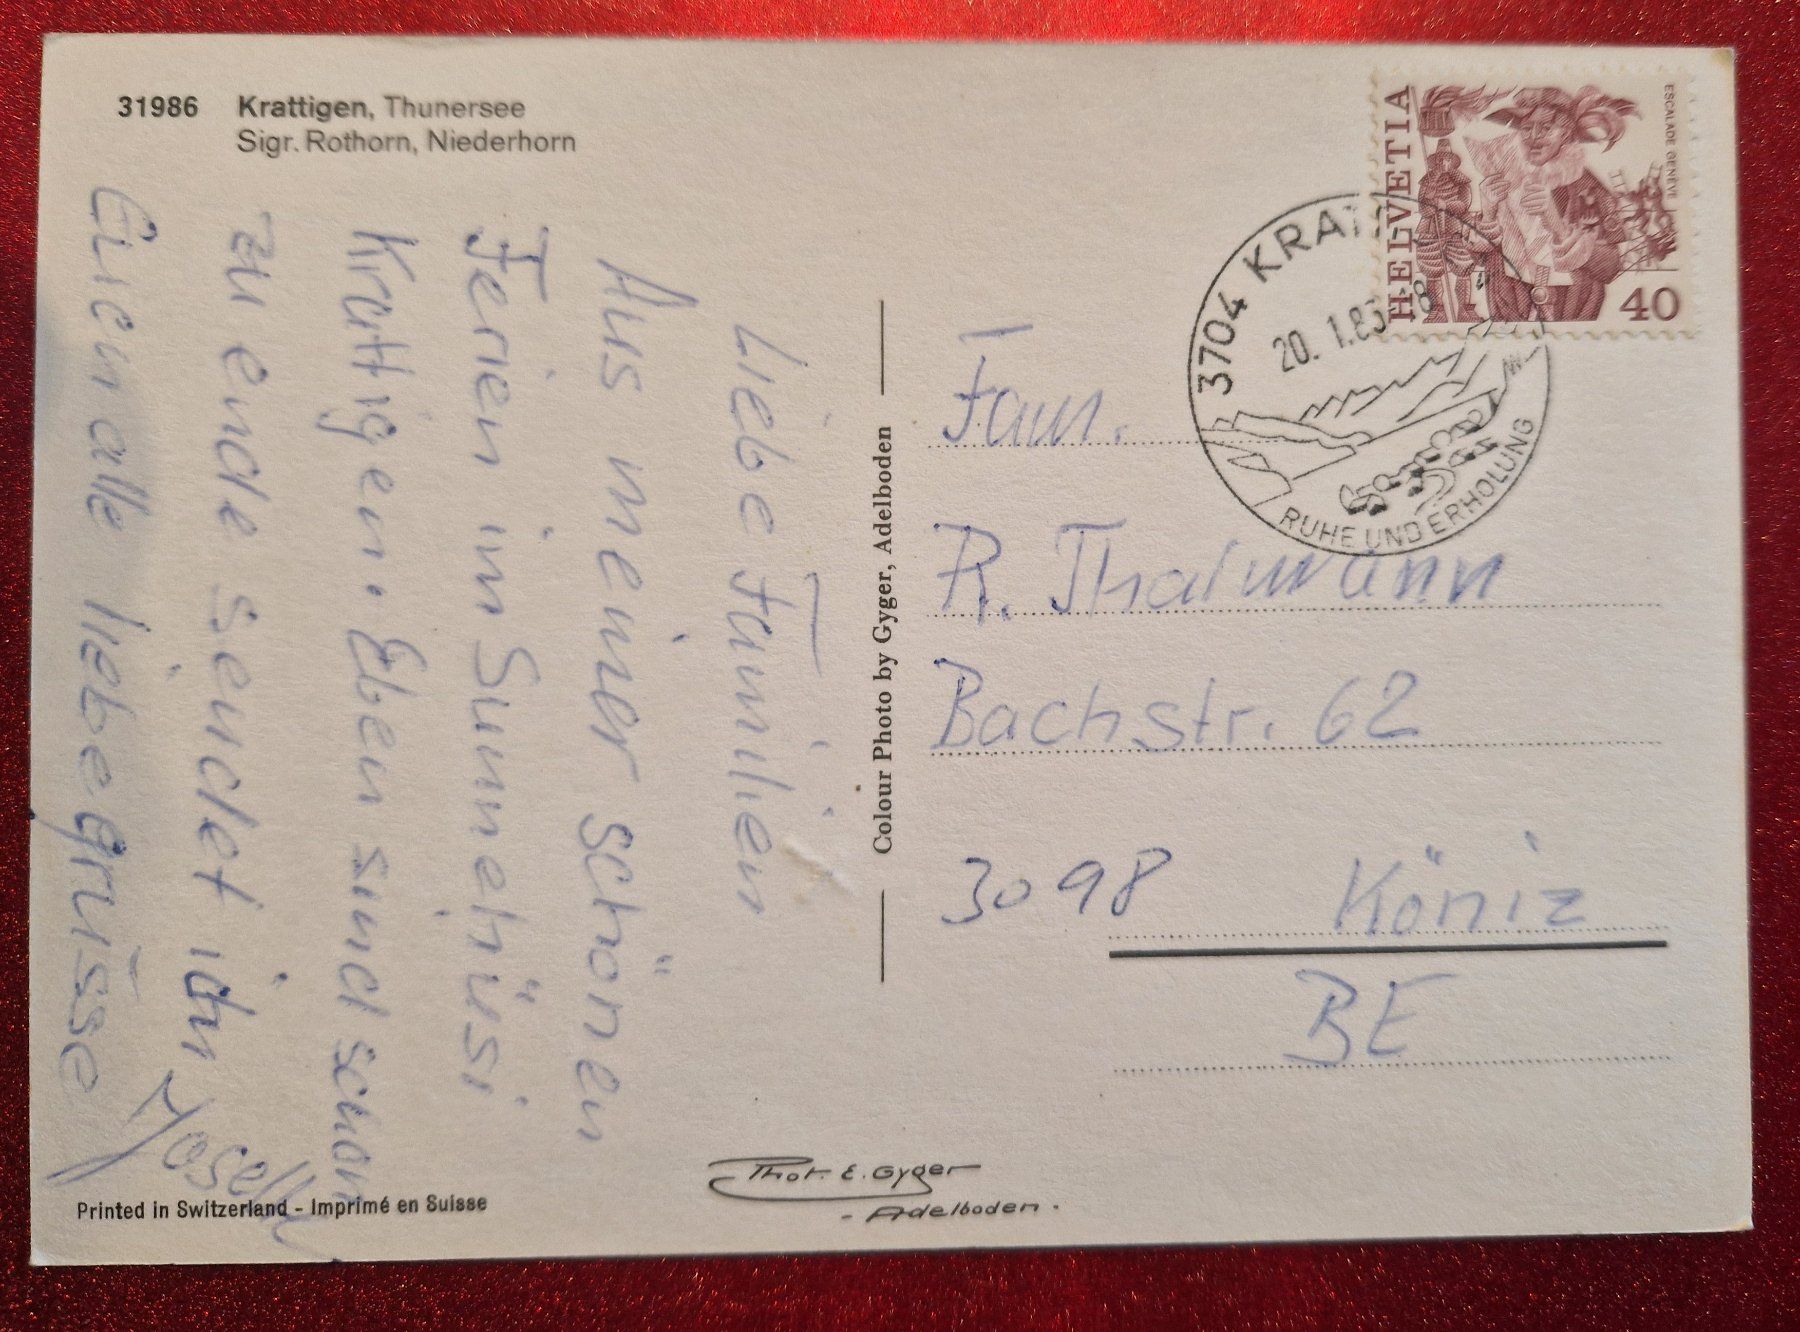 31986 Krattigen, Thunersee
Sigr. Rothorn, Niederhorn
Liebe Familien
Aus meiner schönen
Ferien im Sunnehüsi
Krattigen. Eben sind schon
zu ende sendet ihn
Euch alle liebe grüsse
Printed in Switzerland - Imprimé en Suisse
Colour Photo by Gyger, Adelboden
Phot. E. Gyger
- Adelboden.
HELVETIA
ESCALADE GENÈVE
40
3704
20. 1.8
RUHE UND ERHOLUNG
Fam.
R. Thalmann
Bachstr. 62
3098 Köniz
BE